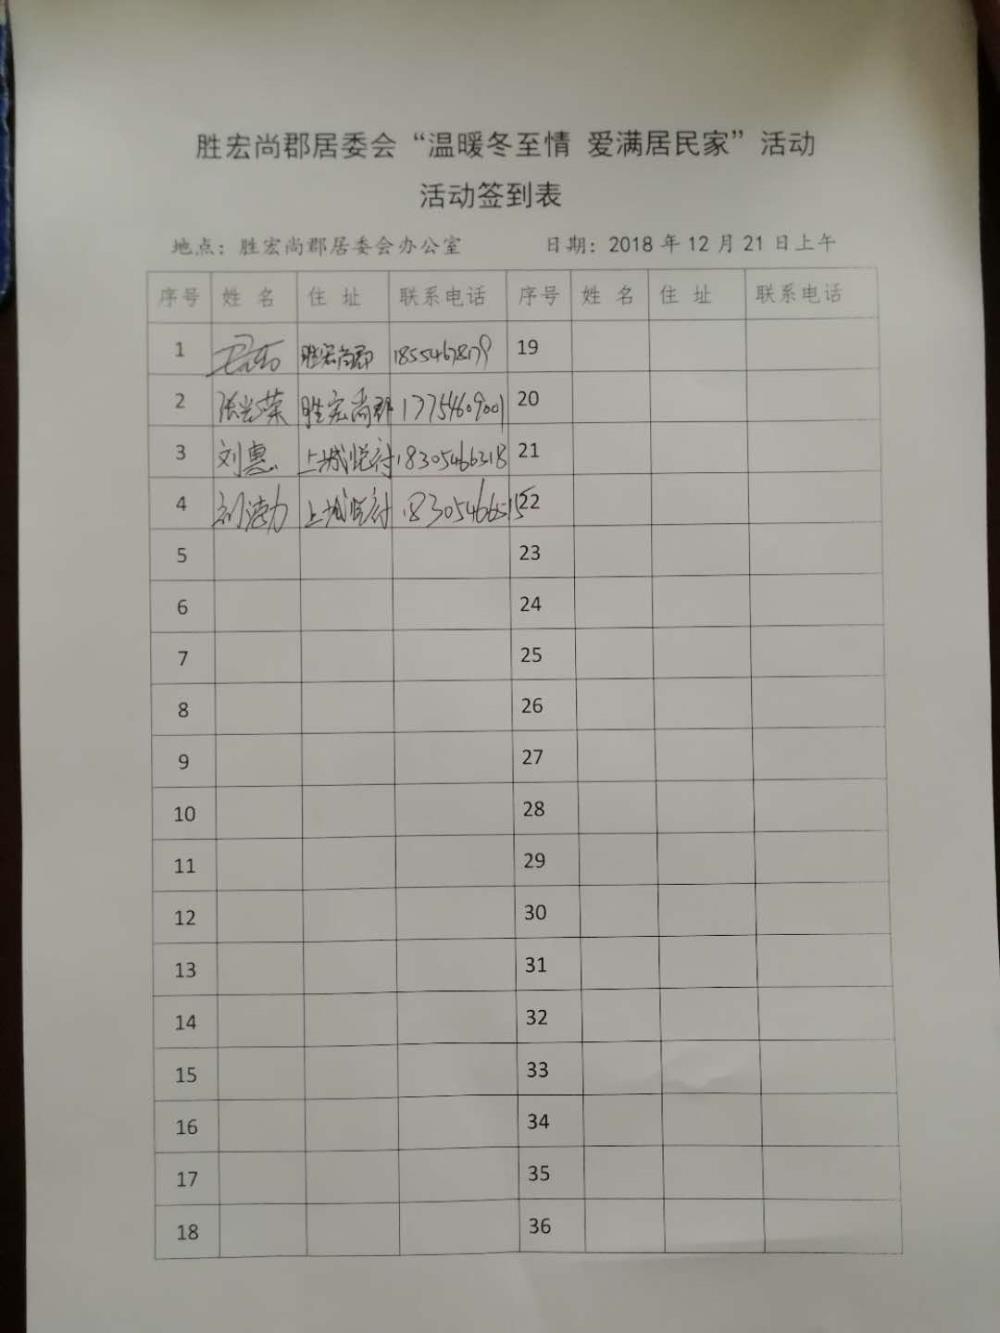 胜宏尚郡居委会“温暖冬至情 爱满居民家”活动
活动签到表
地点：胜宏尚郡居委会办公室 日期：2018 年 12 月 21 日上午
序号 姓 名 住 址 联系电话 序号 姓 名 住 址 联系电话
1 胜宏尚郡 19
2 张光荣 胜宏尚郡 17754609001 20
3 刘惠 上城悦府 18305466318 21
4 上城悦府 22
5 23
6 24
7 25
8 26
9 27
10 28
11 29
12 30
13 31
14 32
15 33
16 34
17 35
18 36